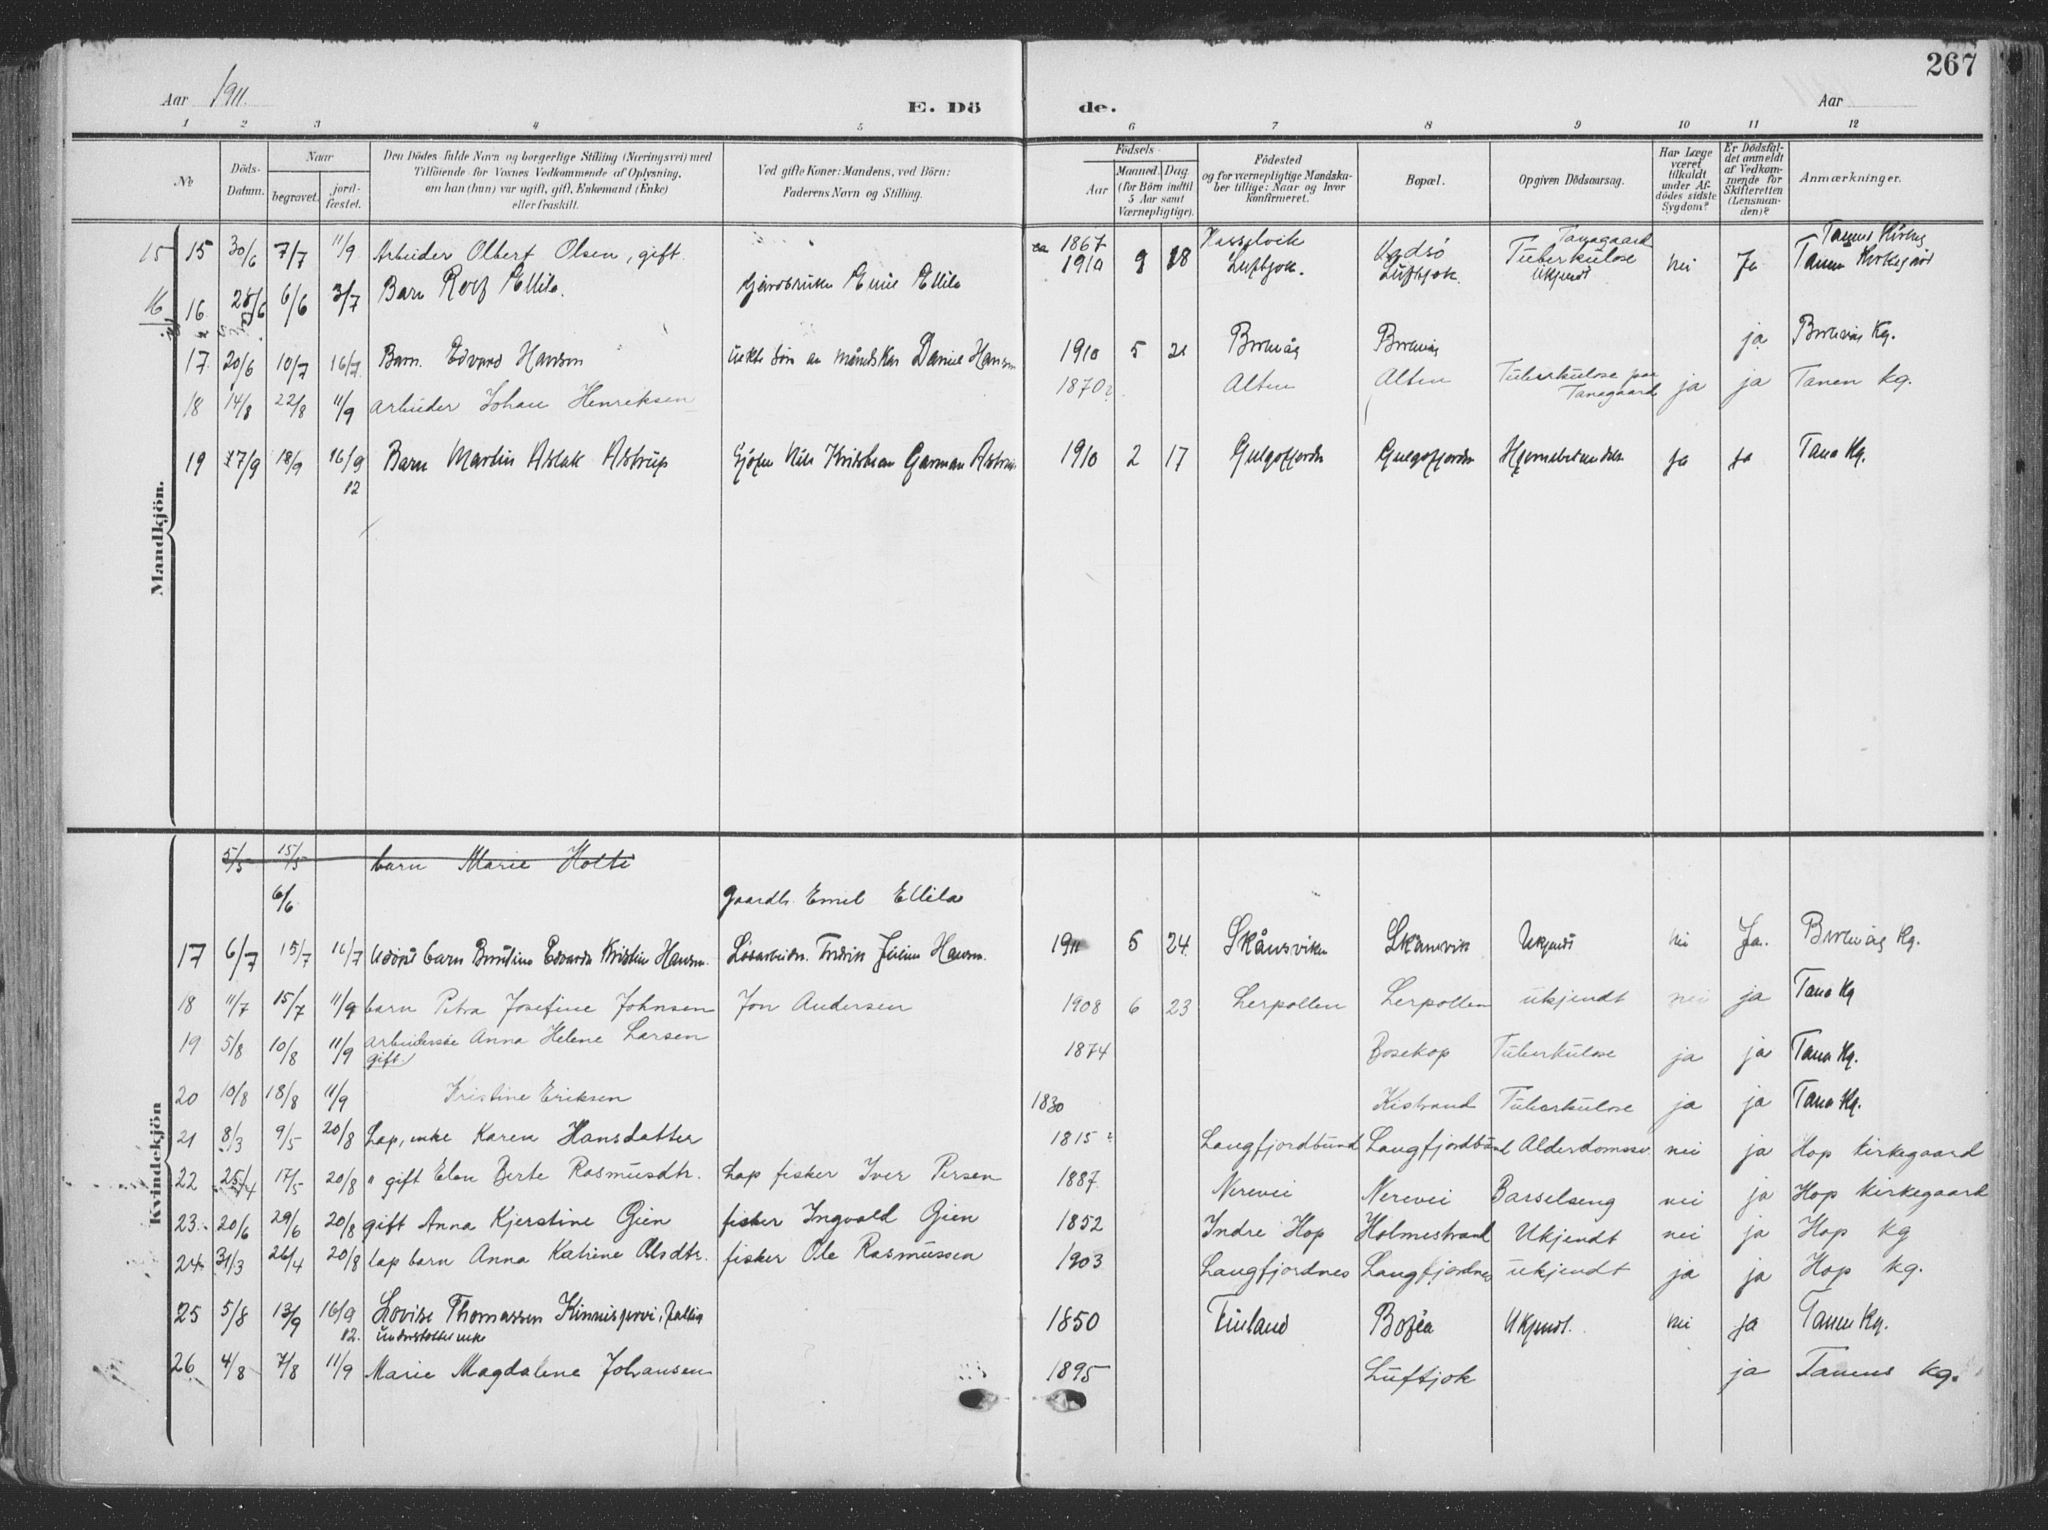 267
Aar 1911.
E. Dö de.
Aar
1 2 3 4 5 6 7 8 9 10 11 12
No
Döds-Datum.
Naar
begravet.
jord-fæstet.
Den Dödes fulde Navn og borgerlige Stilling (Næringsvei) med
Tilföiende for Voxnes Vedkommende af Oplysning,
om han (hun) var ugift, gift, Enkemand (Enke)
eller fraskilt.
Ved gifte Koner: Mandens, ved Börn:
Faderens Navn og Stilling.
Födsels-
Aar
Maaned. Dag
(for Börn indtil
5 Aar samt
Værnepligtige).
Födested
og for værnepligtige Mandska-
ber tillige: Naar og hvor
konfirmeret.
Bopæl.
Opgiven Dödsaarsag.
Har Læge
været
tilkaldt
under Af-
dödes sidste
Sygdom?
Er Dödsfal-
det anmeldt
af Vedkom-
mende for
Skifteretten
(Lensman-
den)?
Anmærkninger.
Mandkjön.
15 15 30/6 7/7 11/9 Arbeider Olbert Olsen, gift. ca 1867 Vadsö Tanagaard Tuberkulose nei Ja
16 16 6/6 3/7 Barn Rolf Ellila. Emil Ellila 1910 9 18 Luftjok. Luftjok. Ukjendt
17 20/6 10/7 16/7 Barn. Edvard Hansen Daniel Hansen 1910 5 21 Berlevåg Berlevåg ja Berlevåg Kg.
18 14/8 22/8 11/9 Arbeider Johan Henriksen 1870? Alten Alten Tuberkulose paa Tanagaard ja ja Tanen Kg.
19 17/9 18/9 16/9 12 Barn Martin Aslak Astrup Nils Kristian Garman Astrup 1910 2 17 Gulgofjorden Gulgofjorden Hjernebetændelse ja ja Tana Kg.
Kvindekjön
5/5 15/5 barn Marie Holti
6/6 gaardb. Emil Ellila
17 6/7 15/7 16/7 Udöpt barn Edvarda Kristine Hansen. Lösarbeider. Fredrik Hansen. 1911 5 24. Skånsviken Skånsvik Ukjendt nei Ja. Berlevåg Kg.
18 11/7 15/7 11/9 barn Petra Josefine Johnsen Jon Andersen 1908 6 23 Lerpollen Lerpollen ukjendt nei ja Tana Kg
19 5/8 10/8 11/9 arbeiderske Anna Helene Larsen gift. 1874 Bosekop Tuberkulose ja ja Tana Kg.
20 10/8 18/8 11/9 Kristine Eriksen 1830 Kistrand Tuberkulose ja ja Tana Kg.
21 8/3 9/5 20/8 Lap, enke Karen Hansdatter 1815? Langfjordbund Langfjordbund Alderdomssv. nei ja Hop kirkegaard
22 25/4 17/5 20/8 " gift Elen Berte Rasmusdtr. Lap fisker Iver Persen 1887 Nerevei Nerevei Barselseng nei ja Hop kirkegaard
23. 20/6 29/6 20/8 gift Anna Kjerstine Gien fisker Ingvald Gien 1852 Indre Hop Holmestrand Ukjendt nei ja Hop kg
24 31/3 26/4 20/8 lap barn Anna Katrine Olsdtr. fisker Ole Rasmussen 1903 Langfjordnes Langfjordnes ukjendt ja ja Hop kg.
25 5/8 13/9 16/9 12. Lovise Thomassen fattigunderstöttet enke 1850 Finland Ukjendt. nei ja Tanen Kg.
26 4/8 7/8 11/9 Marie Magdalene Johansen 1895 Luftjok ja Tanens kg.